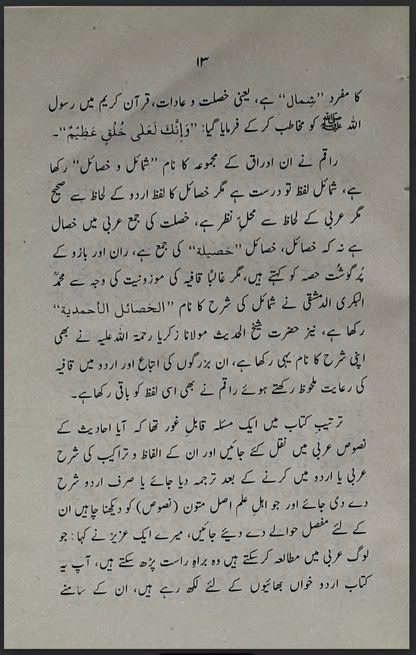 ۱۳
کا مفرد ”شِمال“ ہے، یعنی خصلت و عادات، قرآن کریم میں رسول
اللہ ﷺ کو مخاطب کرکے فرمایا گیا: ”وَإِنَّكَ لَعَلٰى خُلُقٍ عَظِيْمٌ“۔
راقم نے ان اوراق کے مجموعہ کا نام ”شمائل و خصائل“ رکھا
ہے، شمائل لفظ تو درست ہے مگر خصائل کا لفظ اردو کے لحاظ سے صحیح
مگر عربی کے لحاظ سے محلِ نظر ہے، خصلت کی جمع عربی میں خصال
ہے نہ کہ خصائل، خصائل ”خصیلة“ کی جمع ہے، ران اور بازو کے
پُرگوشت حصہ کو کہتے ہیں، مگر غالباً قافیہ کی موزونیت کی وجہ سے محمدؒ
البکری الدمشقی نے شمائل کی شرح کا نام ”الخصائل الأحمدية“
رکھا ہے، نیز حضرت شیخ الحدیث مولانا زکریا رحمۃ اللہ علیہ نے بھی
اپنی شرح کا نام یہی رکھا ہے، ان بزرگوں کی اتباع اور اردو میں قافیہ
کی رعایت ملحوظ رکھتے ہوئے راقم نے بھی اسی لفظ کو باقی رکھا ہے۔
ترتیبِ کتاب میں ایک مسئلہ قابلِ غور تھا کہ آیا احادیث کے
نصوص عربی میں نقل کئے جائیں اور ان کے الفاظ و تراکیب کی شرح
عربی یا اردو میں کرنے کے بعد ترجمہ دیا جائے یا صرف اردو شرح
دے دی جائے اور جو اہلِ علم اصل متون (نصوص) کو دیکھنا چاہیں ان
کے لئے مفصل حوالے دے دیئے جائیں، میرے ایک عزیز نے کہا: جو
لوگ عربی میں مطالعہ کرسکتے ہیں وہ براہِ راست پڑھ سکتے ہیں، آپ یہ
کتاب اردو خواں بھائیوں کے لئے لکھ رہے ہیں، ان کے سامنے